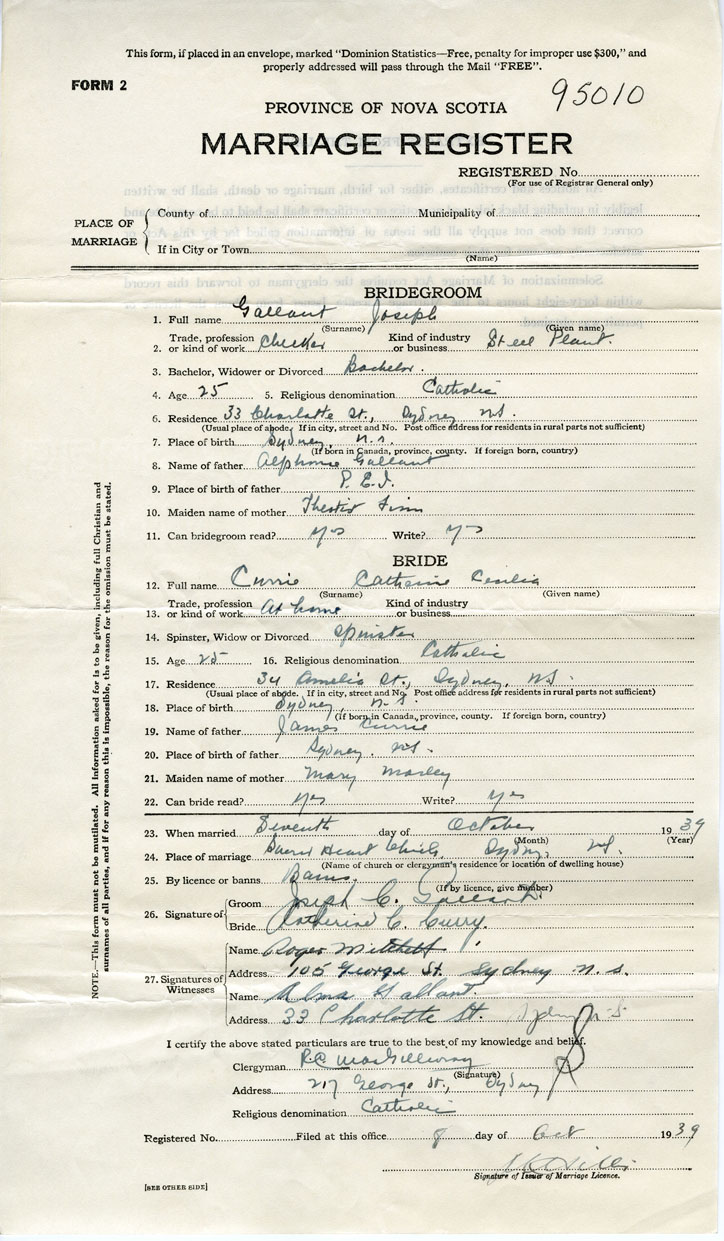 This form, if placed in an envelope, marked "Dominion Statistics—Free, penalty for improper use $300," and
properly addressed will pass through the Mail "FREE".
FORM 2
95010
PROVINCE OF NOVA SCOTIA
MARRIAGE REGISTER
REGISTERED No.
(For use of Registrar General only)
PLACE OF MARRIAGE
County of Municipality of
If in City or Town
(Name)
BRIDEGROOM
1. Full name Gallant Joseph
(Surname) (Given name)
2. Trade, profession or kind of work Checker Kind of industry or business Steel Plant.
3. Bachelor, Widower or Divorced Bachelor.
4. Age 25 5. Religious denomination Catholic
6. Residence 33 Charlotte St., Sydney N.S.
(Usual place of abode. If in city, street and No. Post office address for residents in rural parts not sufficient)
7. Place of birth Sydney, N.S.
(If born in Canada, province, county. If foreign born, country)
8. Name of father Alphonse Gallant
9. Place of birth of father P.E.I.
10. Maiden name of mother
11. Can bridegroom read? Yes Write? Yes
BRIDE
12. Full name Currie Catherine Cecilia
(Surname) (Given name)
13. Trade, profession or kind of work At home Kind of industry or business
14. Spinster, Widow or Divorced Spinster
15. Age 25 16. Religious denomination Catholic
17. Residence 34 Amelia St., Sydney, N.S.
(Usual place of abode. If in city, street and No. Post office address for residents in rural parts not sufficient)
18. Place of birth Sydney, N.S.
(If born in Canada, province, county. If foreign born, country)
19. Name of father James Currie
20. Place of birth of father Sydney. N.S.
21. Maiden name of mother Mary Morley
22. Can bride read? Yes Write? Yes
23. When married Seventh day of October 1939
(Month) (Year)
24. Place of marriage Sacred Heart Church, Sydney, N.S.
(Name of church or clergyman's residence or location of dwelling house)
25. By licence or banns Banns.
(If by licence, give number)
26. Signature of
Groom Joseph C. Gallant.
Bride Katherine C. Curry.
27. Signatures of Witnesses
Name Roger Mitchell
Address 105 George St. Sydney N.S.
Name Alma Gallant.
Address 33 Charlotte St. Sydney N.S.
I certify the above stated particulars are true to the best of my knowledge and belief.
Clergyman R.C. MacGillivray
(Signature)
Address 217 George St., Sydney
Religious denomination Catholic
Registered No. Filed at this office 8 day of Oct 1939
Signature of Issuer of Marriage Licence.
[SEE OTHER SIDE]
NOTE.—This form must not be mutilated. All information asked for is to be given, including full Christian and
surnames of all parties, and if for any reason this is impossible, the reason for the omission must be stated.